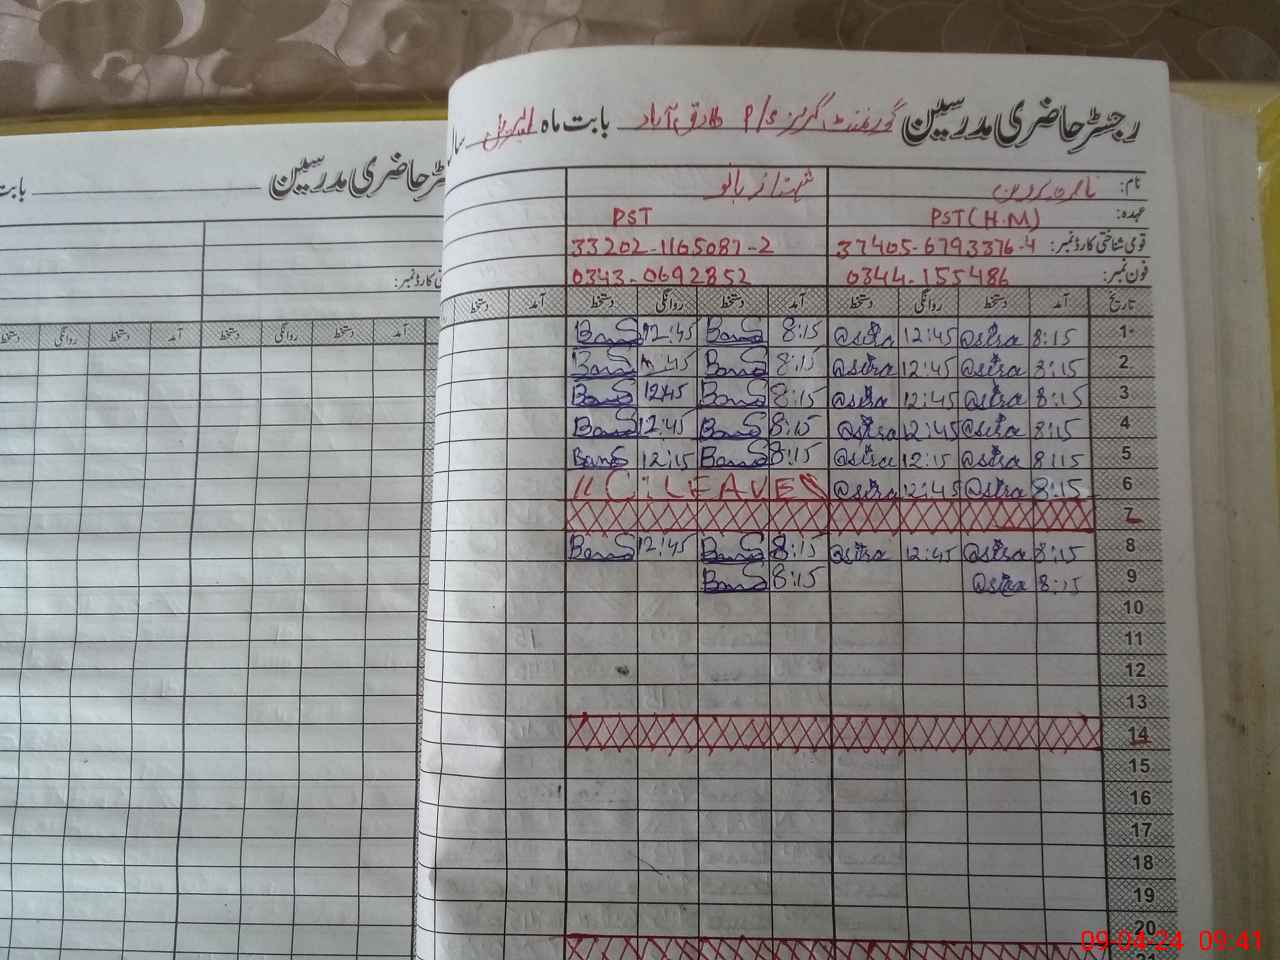 رجسٹر حاضری مدرسین گورنمنٹ گرلز P/S طارق آباد بابت ماہ اپریل سال
رجسٹر حاضری مدرسین بابت
نام: ناصرہ پروین شہناز بانو
عہدہ: PST(H.M) PST
قومی شناختی کارڈ نمبر: 37405-6793376-4 33202-1165087-2
فون نمبر: 0344-155486 0343-0692852
تاریخ آمد دستخط روانگی دستخط آمد دستخط روانگی دستخط آمد دستخط
1 8:15 @sira 12:45 @sira 8:15 Bano 12:45 Bano
2 8:15 @sira 12:45 @sira 8:15 Bano 12:45 Bano
3 8:15 @sira 12:45 @sira 8:15 Bano 12:45 Bano
4 8:15 @sira 12:45 @sira 8:15 Bano 12:45 Bano
5 8:15 @sira 12:15 @sira 8:15 Bano 12:15 Bano
6 8:15 @sira 12:45 @sira LEAVE
7
8 8:15 @sira 12:45 @sira 8:15 Bano 12:45 Bano
9 8:15 @sira 8:15 Bano
10
11
12
13
14
15
16
17
18
19
20
21
کارڈ نمبر:
آمد دستخط روانگی دستخط آمد دستخط روانگی دستخط
09-04-24 09:41